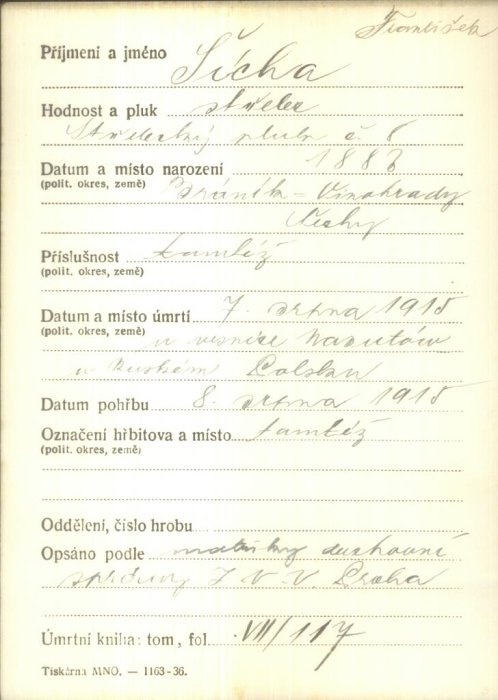 František
Příjmení a jméno Šícha
Hodnost a pluk střelec
Střelecký pluk č. 6
Datum a místo narození 1883
(polit. okres, země) Bráník - Vinohrady
Čechy
Příslušnost tamtéž
(polit. okres, země)
Datum a místo úmrtí 7. srpna 1915
(polit. okres, země) u vesnice
v Ruském Polsku
Datum pohřbu 8. srpna 1915
Označení hřbitova a místo tamtéž
(polit. okres, země)
Oddělení, číslo hrobu
Opsáno podle matriky duchovní
správy Z V. V. Praha
Úmrtní kniha: tom, fol. VII/117
Tiskárna MNO. — 1163-36.